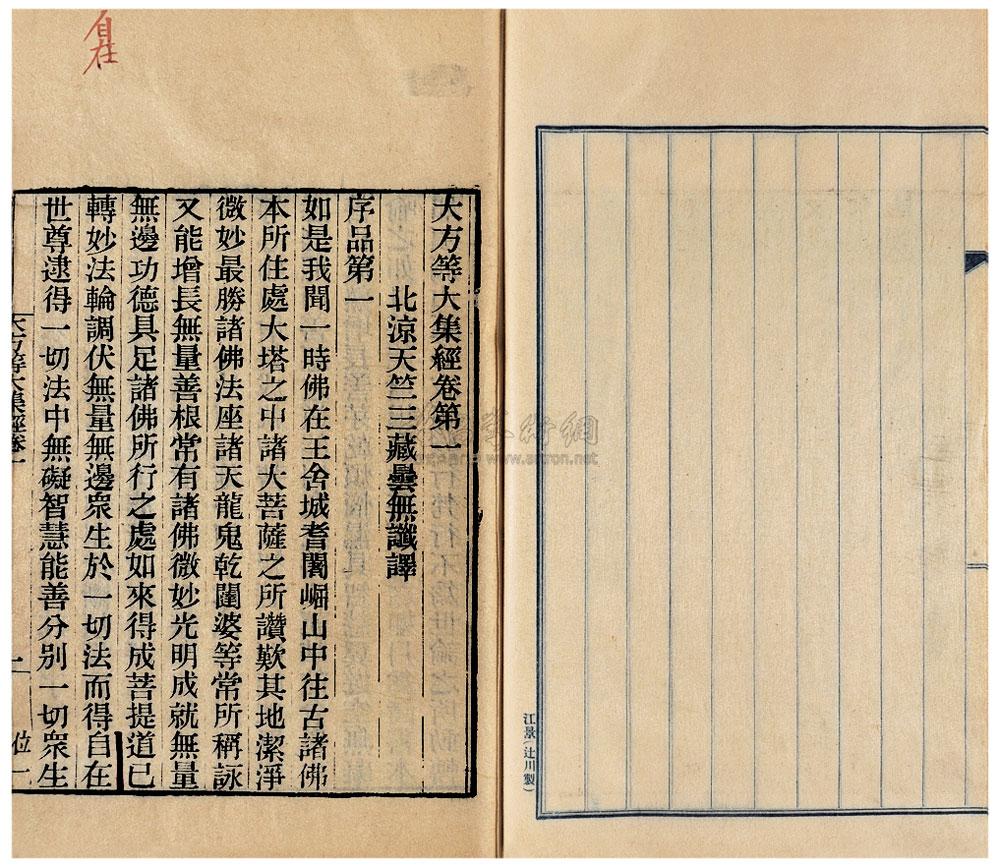 自在
大方等大集經卷第一
北涼天竺三藏曇無讖譯
序品第一
如是我聞一時佛在王舍城耆闍崛山中往古諸佛
本所住處大塔之中諸大菩薩之所讚歎其地潔淨
微妙最勝諸佛法座諸天龍鬼乾闥婆等常所稱詠
又能增長無量善根常有諸佛微妙光明成就無量
無邊功德具足諸佛所行之處如來得成菩提道已
轉妙法輪調伏無量無邊衆生於一切法而得自在
世尊逮得一切法中無礙智慧能善分別一切衆生
大方等大集經卷一
一
位一
江景(辻川製)
www.artron.net